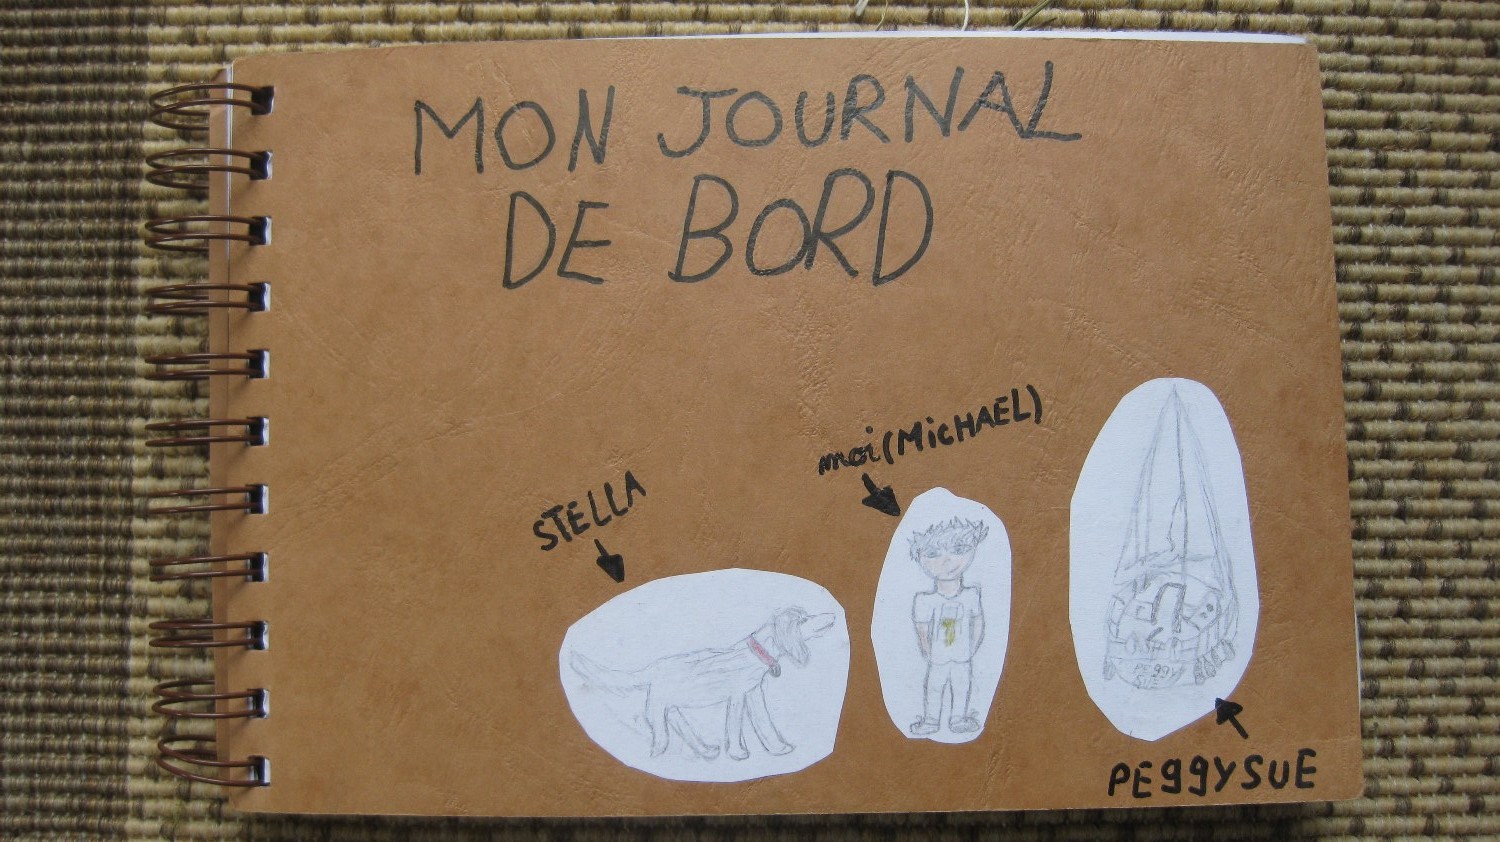 MON JOURNAL
DE BORD
moi (MicHAEL)
STELLA
PEGGY
SUE
PEggYSUE